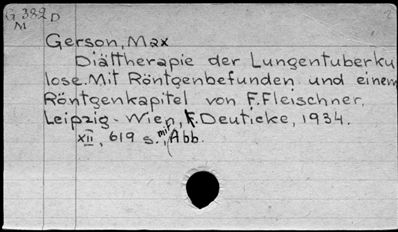 G 382 D
M
Gerson, Max
Diättherapie der Lungentuberku
lose. Mit Röntgenbefunden und einem
Röntgenkapitel von F. Fleischner.
Leipzig - Wien, F. Deuticke, 1934.
XII, 619 s. mit Abb.